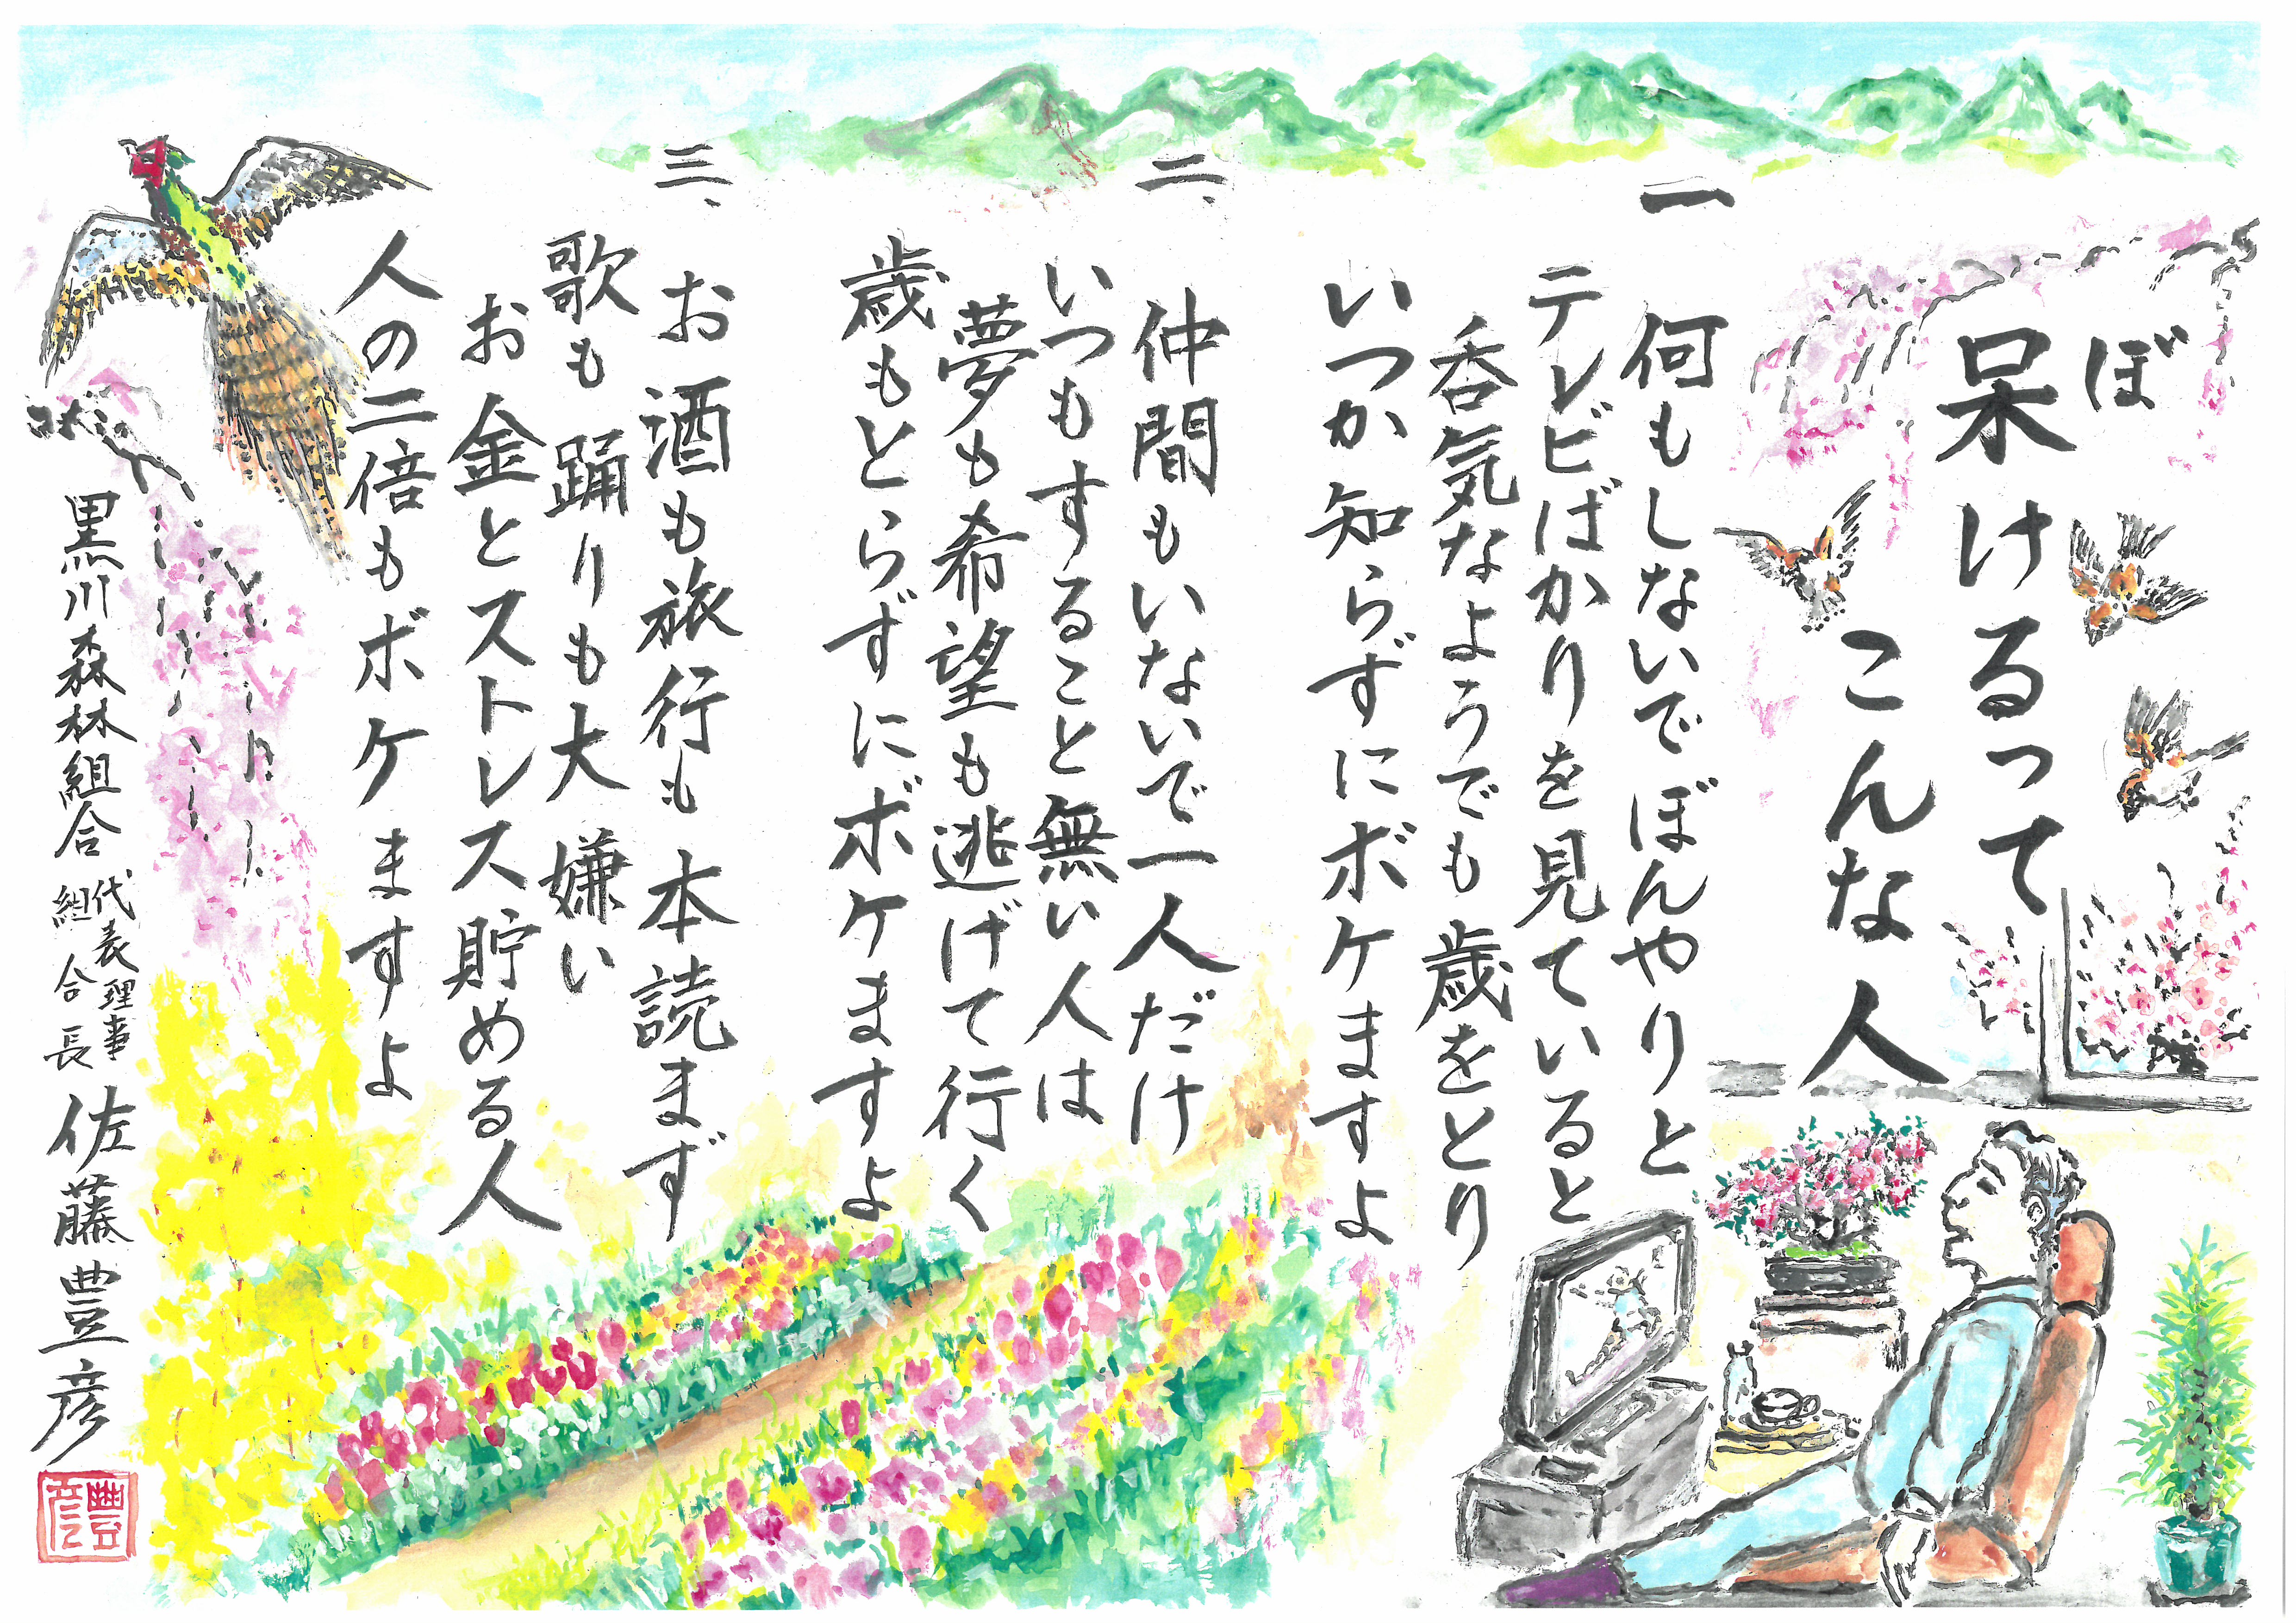 呆けるって
ぼ
こんな人
一
何もしないでぼんやりと
テレビばかりを見ていると
呑気なようでも歳をとり
いつか知らずにボケますよ
二、
仲間もいないで一人だけ
いつもすること無い人は
夢も希望も逃げて行く
歳もとらずにボケますよ
三、
お酒も旅行も本読まず
歌も踊りも大嫌い
お金とストレス貯める人
人の二倍もボケますよ
黒川森林組合
代表理事
組合長
佐藤豊彦
豊彦